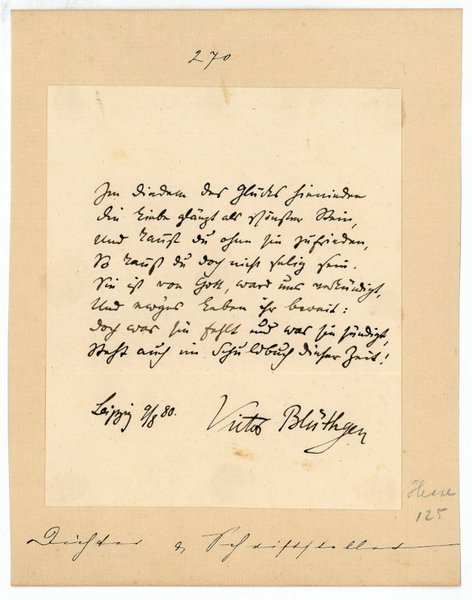 270
Im Diadem des Glücks hienieden
Die Liebe glänzt als schönster Stein,
Und kannst du ohne sie zufrieden,
So kannst du doch nicht selig sein.
Sie ist von Gott, ward uns verkündigt,
Und ew'ges Leben ihr bereit:
Doch was sie fehlt und was sie sündigt,
Steht auch im Schuldbuch dieser Zeit!
Leipzig 9/8 80.
Victor Blüthgen
125
Dichter & Schriftsteller